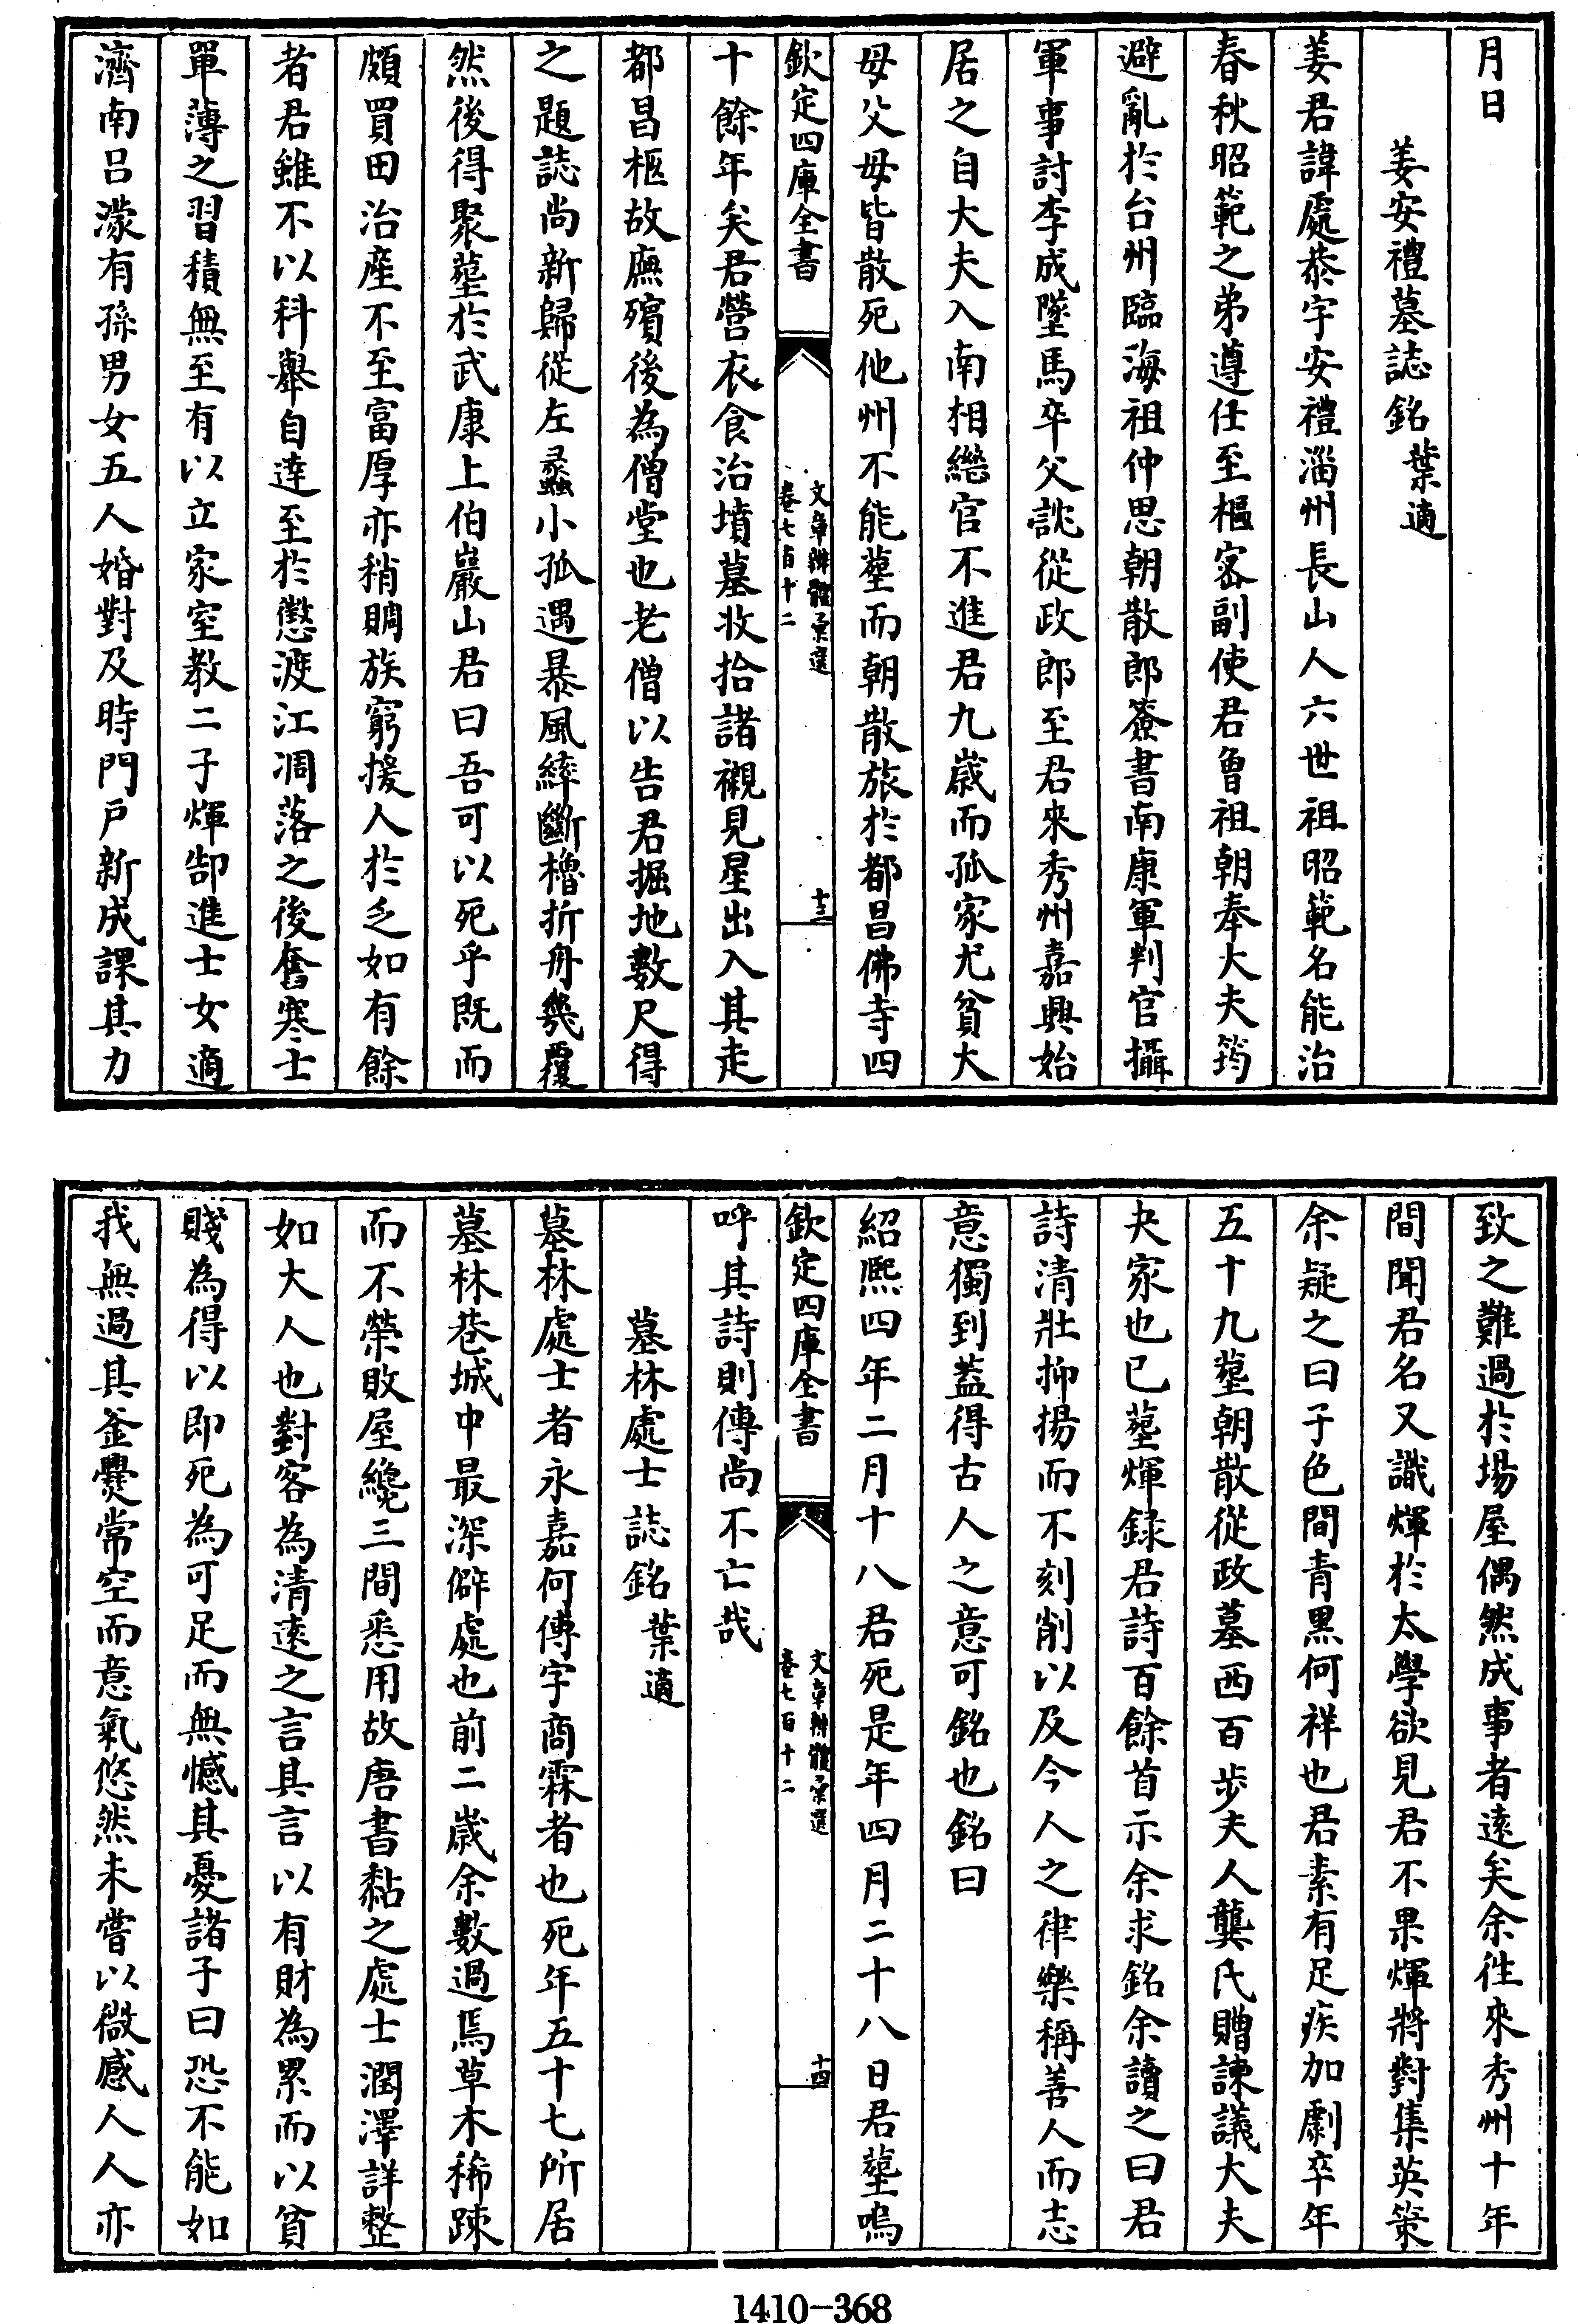 月日
姜安禮墓誌銘葉適
姜君諱處恭字安禮淄州長山人六世祖昭範名能治
春秋昭範之弟遵任至樞密副使君曾祖朝奉大夫筠
避亂於台州臨海祖仲思朝散郎簽書南康軍判官攝
軍事討李成墜馬卒父詵從政郎至君來秀州嘉興始
居之自大夫入南相繼官不進君九歲而孤家尤貧大
母父母皆散死他州不能塟而朝散旅於都昌佛寺四
欽定四庫全書
文章辨體彙選
卷七百十二
十三
十餘年矣君營衣食治墳墓收拾諸櫬見星出入其走
都昌柩故廡殯後為僧堂也老僧以告君掘地數尺得
之題誌尚新歸從左蠡小孤遇暴風縴斷櫓折舟幾覆
然後得聚塟於武康上伯巖山君曰吾可以死乎既而
頗買田治產不至富厚亦稍賙族窮援人於乏如有餘
者君雖不以科舉自達至於懲渡江凋落之後奮寒士
單薄之習積無至有以立家室教二子煇郜進士女適
濟南呂濛有孫男女五人婚對及時門戶新成課其力
致之難過於場屋偶然成事者遠矣余徃來秀州十年
間聞君名又識煇於太學欲見君不果煇將對集英策
余疑之曰子色間青黑何祥也君素有足疾加劇卒年
五十九塟朝散從政墓西百步夫人龔氏贈諫議大夫
夬家也已塟煇録君詩百餘首示余求銘余讀之曰君
詩清壯抑揚而不刻削以及今人之律樂稱善人而志
意獨到蓋得古人之意可銘也銘曰
紹熙四年二月十八君死是年四月二十八日君塟嗚
欽定四庫全書
文章辨體彙選
卷七百十二
十四
呼其詩則傳尚不亡哉
墓林處士誌銘葉適
墓林處士者永嘉何傅字商霖者也死年五十七所居
墓林巷城中最深僻處也前二歲余數過焉草木稀踈
而不榮敗屋纔三間悉用故唐書黏之處士潤澤詳整
如大人也對客為清遠之言其言以有財為累而以貧
賤為得以即死為可足而無憾其憂諸子曰恐不能如
我無過其釡㸑常空而意氣悠然未嘗以微感人人亦
1410-368